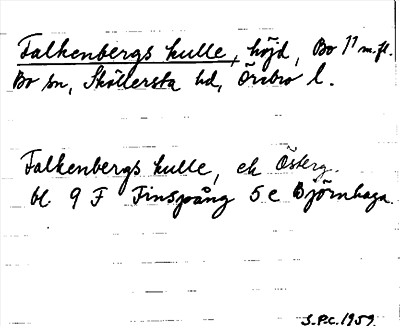 Falkenbergs kulle, höjd, Bo 11 m.fl.
Bo sn, Sköllersta hd, Örebro l.
Falkenbergs kulle, ek Österg.
bl. 9 F Finspång 5 e Björnhaga.
S.P.C. 1959